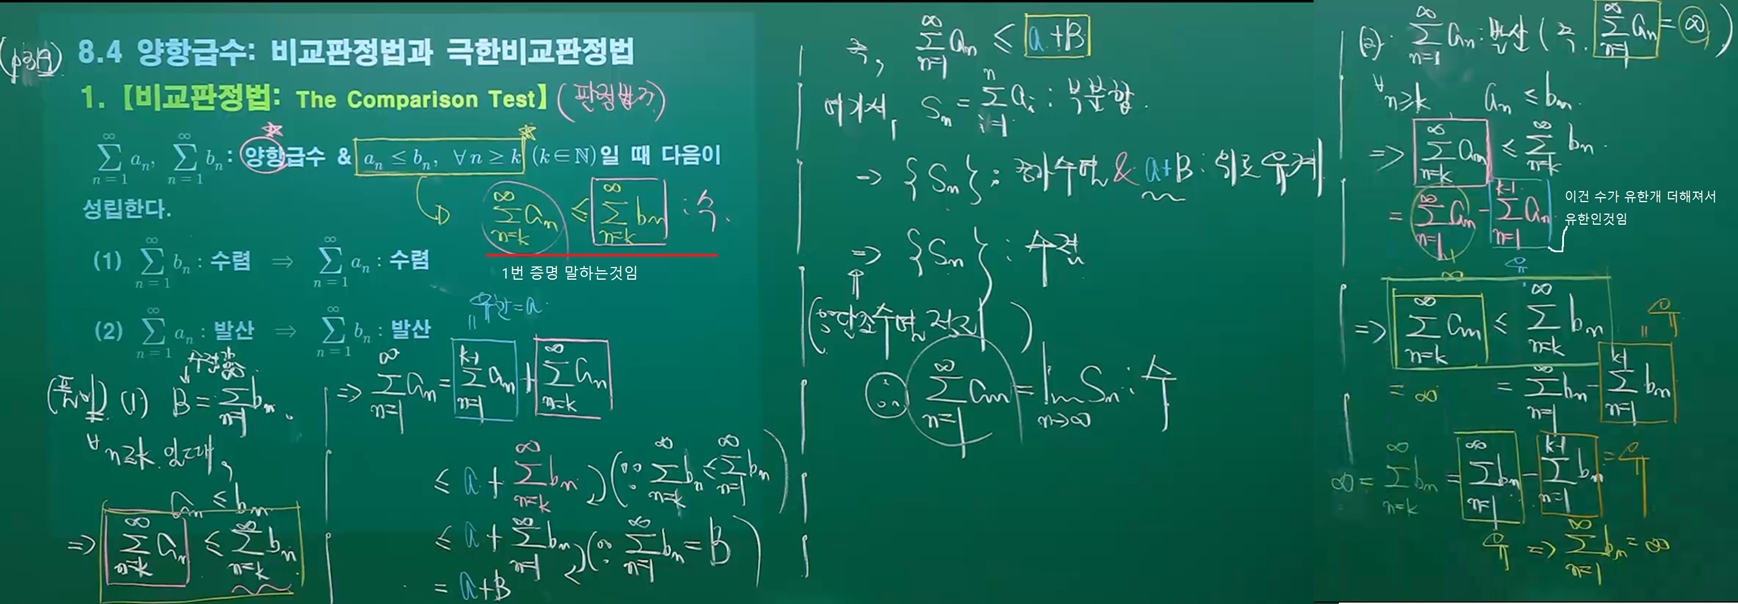 8.4 양항급수: 비교판정법과 극한비교판정법
1. 【비교판정법: The Comparison Test】(판정법가)
∑_{n=1}^{∞} a_n, ∑_{n=1}^{∞} b_n : 양항급수 & a_n ≤ b_n, ∀n ≥ k (k∈ℕ)일 때 다음이
성립한다.
∑_{n=k}^{∞} a_n ≤ ∑_{n=k}^{∞} b_n : 수.
1번 증명 말하는것임
(1) ∑_{n=1}^{∞} b_n : 수렴 ⇒ ∑_{n=1}^{∞} a_n : 수렴
(2) ∑_{n=1}^{∞} a_n : 발산 ⇒ ∑_{n=1}^{∞} b_n : 발산
(풀이) (1) B = ∑_{n=1}^{∞} b_n.
수렴값
∀n≥k 일 때,
a_n ≤ b_n
⇒ ∑_{n=k}^{∞} a_n ≤ ∑_{n=k}^{∞} b_n
유한=a
⇒ ∑_{n=1}^{∞} a_n = ∑_{n=1}^{k-1} a_n + ∑_{n=k}^{∞} a_n
≤ a + ∑_{n=k}^{∞} b_n (∵ ∑_{n=k}^{∞} b_n ≤ ∑_{n=1}^{∞} b_n)
≤ a + ∑_{n=1}^{∞} b_n (∵ ∑_{n=1}^{∞} b_n = B)
= a+B
즉, ∑_{n=1}^{∞} a_n ≤ a+B
여기서, S_n = ∑_{i=1}^{n} a_i : 부분합.
→ {S_n} : 증가수열 & a+B : 위로 유계
⇒ {S_n} : 수렴
(단조수렴정리)
∴ ∑_{n=1}^{∞} a_n = lim_{n→∞} S_n : 수
(2) ∑_{n=1}^{∞} a_n : 발산 (즉, ∑_{n=1}^{∞} a_n = ∞)
∀n≥k a_n ≤ b_n.
⇒ ∑_{n=k}^{∞} a_n ≤ ∑_{n=k}^{∞} b_n
= ∑_{n=1}^{∞} a_n − ∑_{n=1}^{k-1} a_n
이건 수가 유한개 더해져서
유한인것임
∞ 유
⇒ ∑_{n=k}^{∞} a_n ≤ ∑_{n=k}^{∞} b_n
= ∞ = ∑_{n=1}^{∞} b_n − ∑_{n=1}^{k-1} b_n
유
∞ = ∑_{n=k}^{∞} b_n = ∑_{n=1}^{∞} b_n − ∑_{n=1}^{k-1} b_n = 유
⇒ ∑_{n=1}^{∞} b_n = ∞